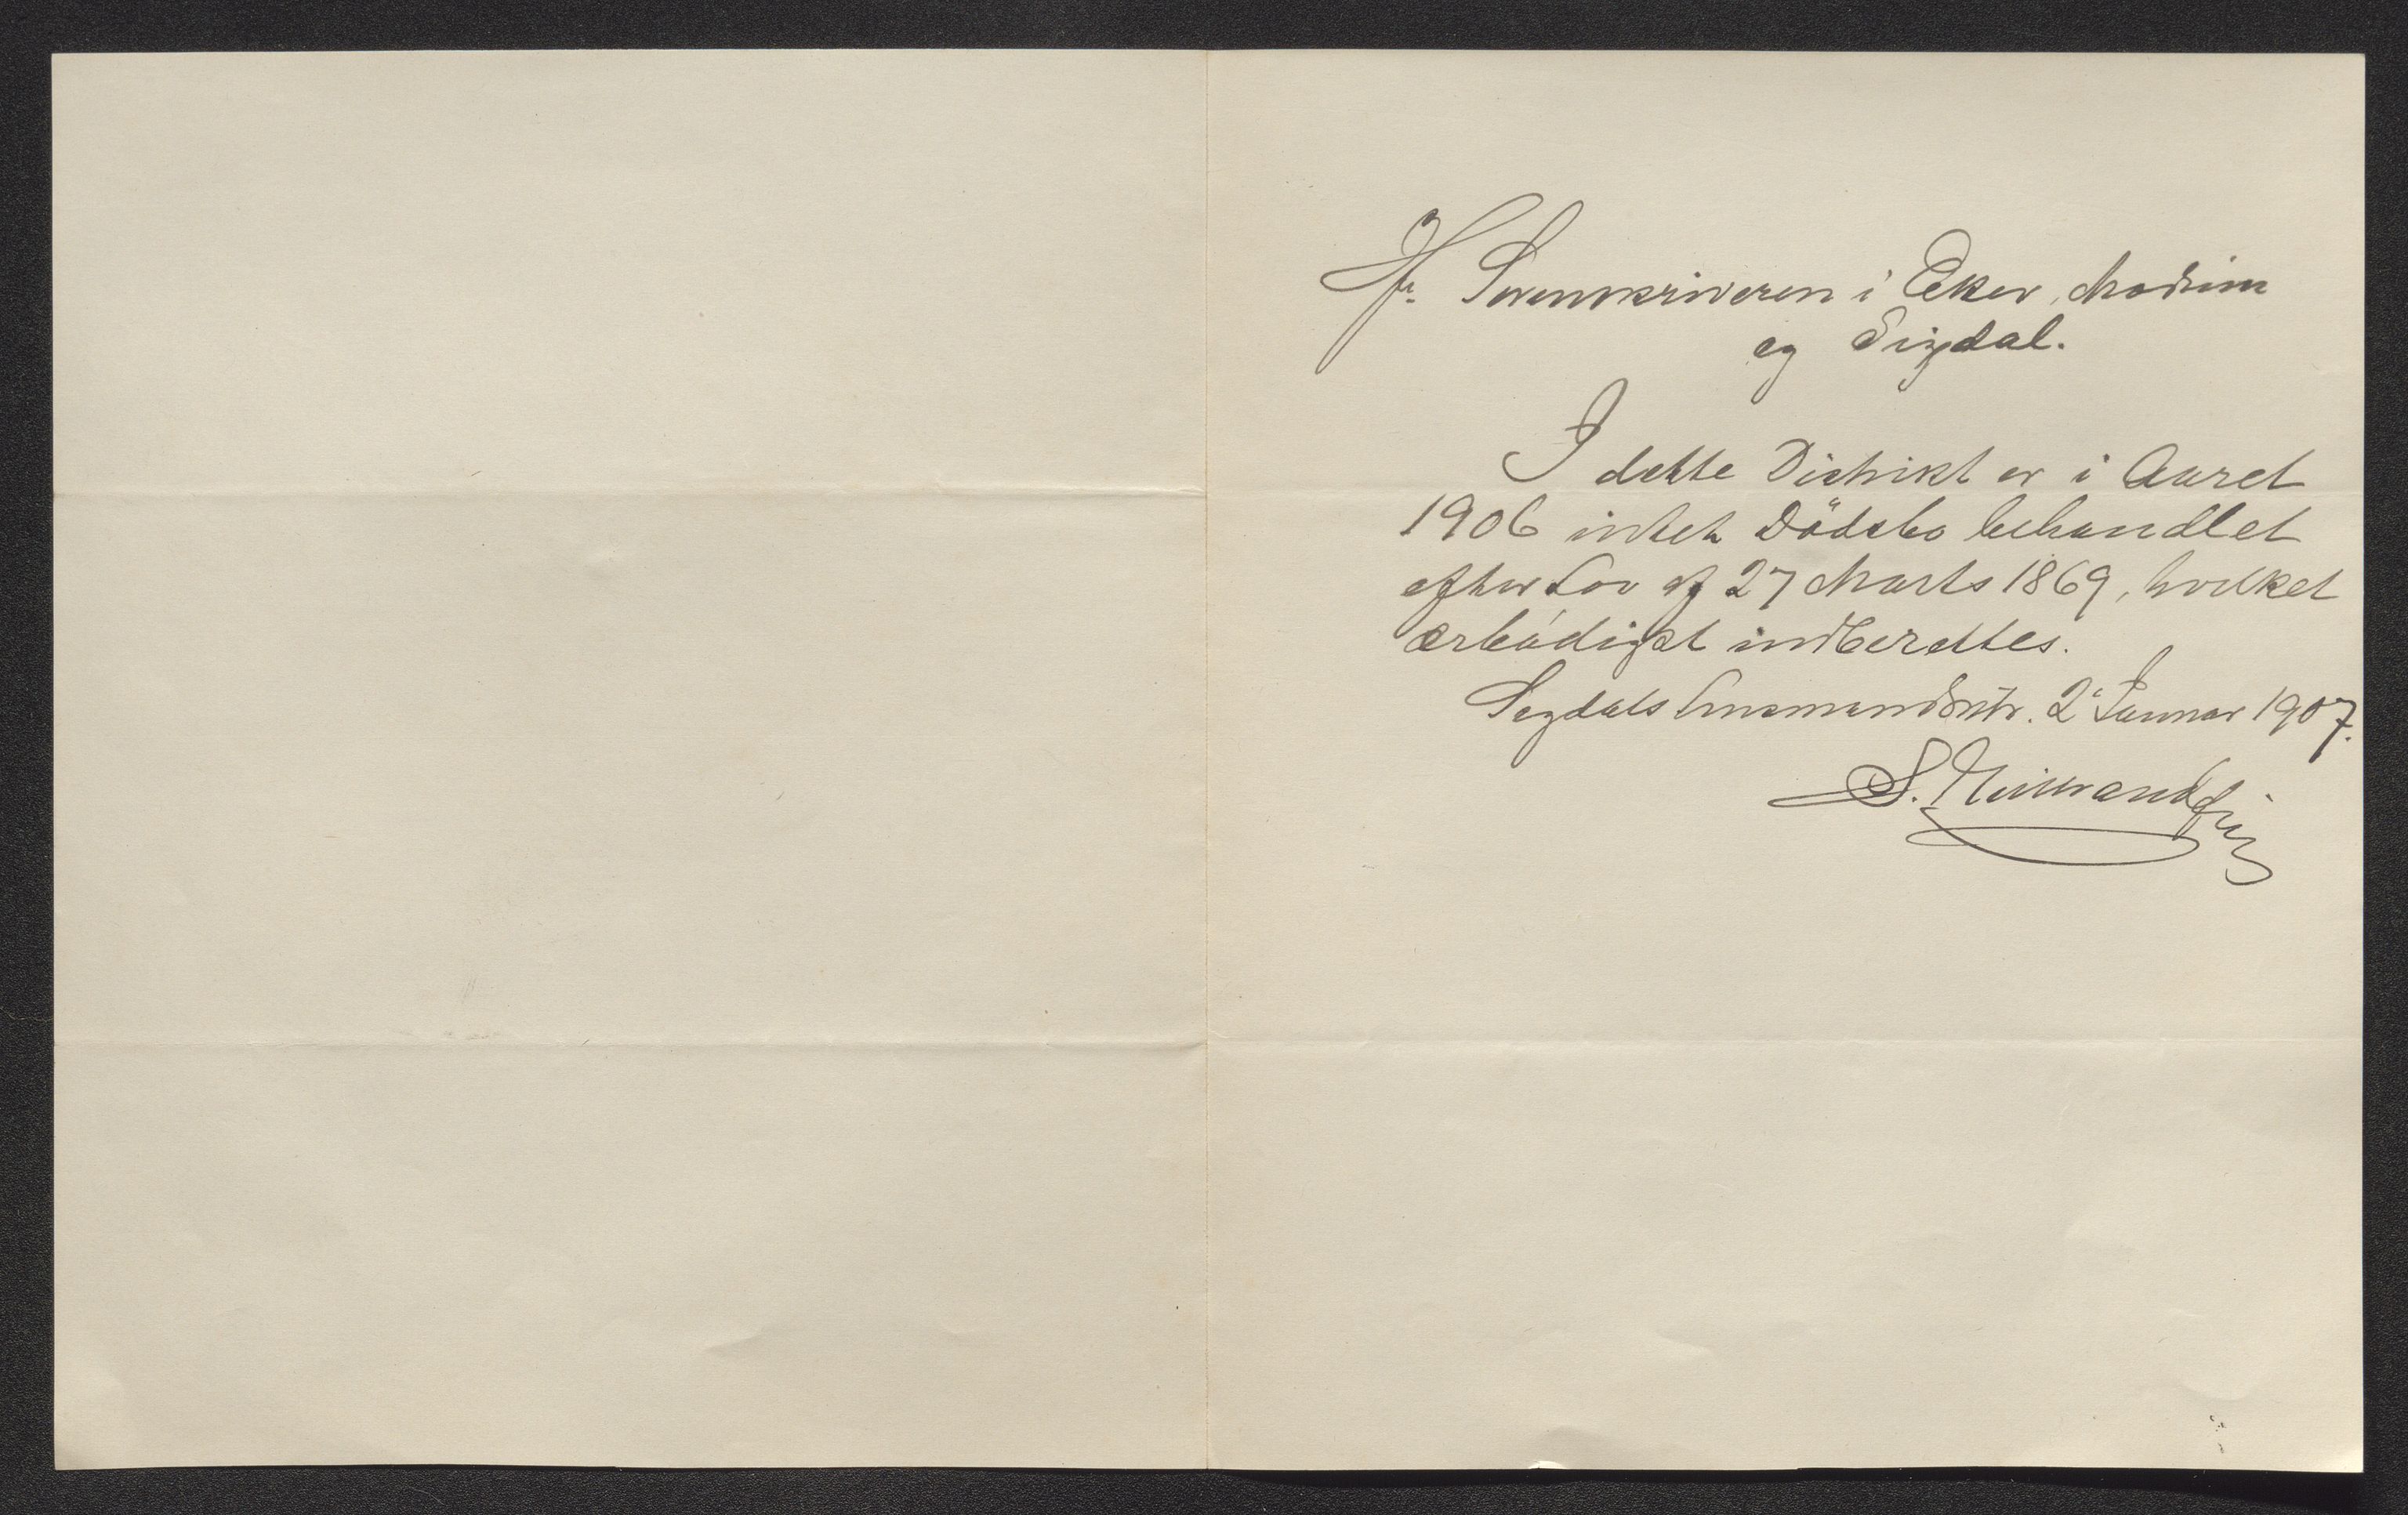 Hr. Sorenskriveren i Eker, Modum
og Sigdal.
I dette Distrikt er i Aaret
1906 intet Dödsbo behandlet
efter Lov af 27 Marts 1869, hvilket
ærbödigst indberettes.
Sigdals Lensmandsktr. 2' Januar 1907.
S.